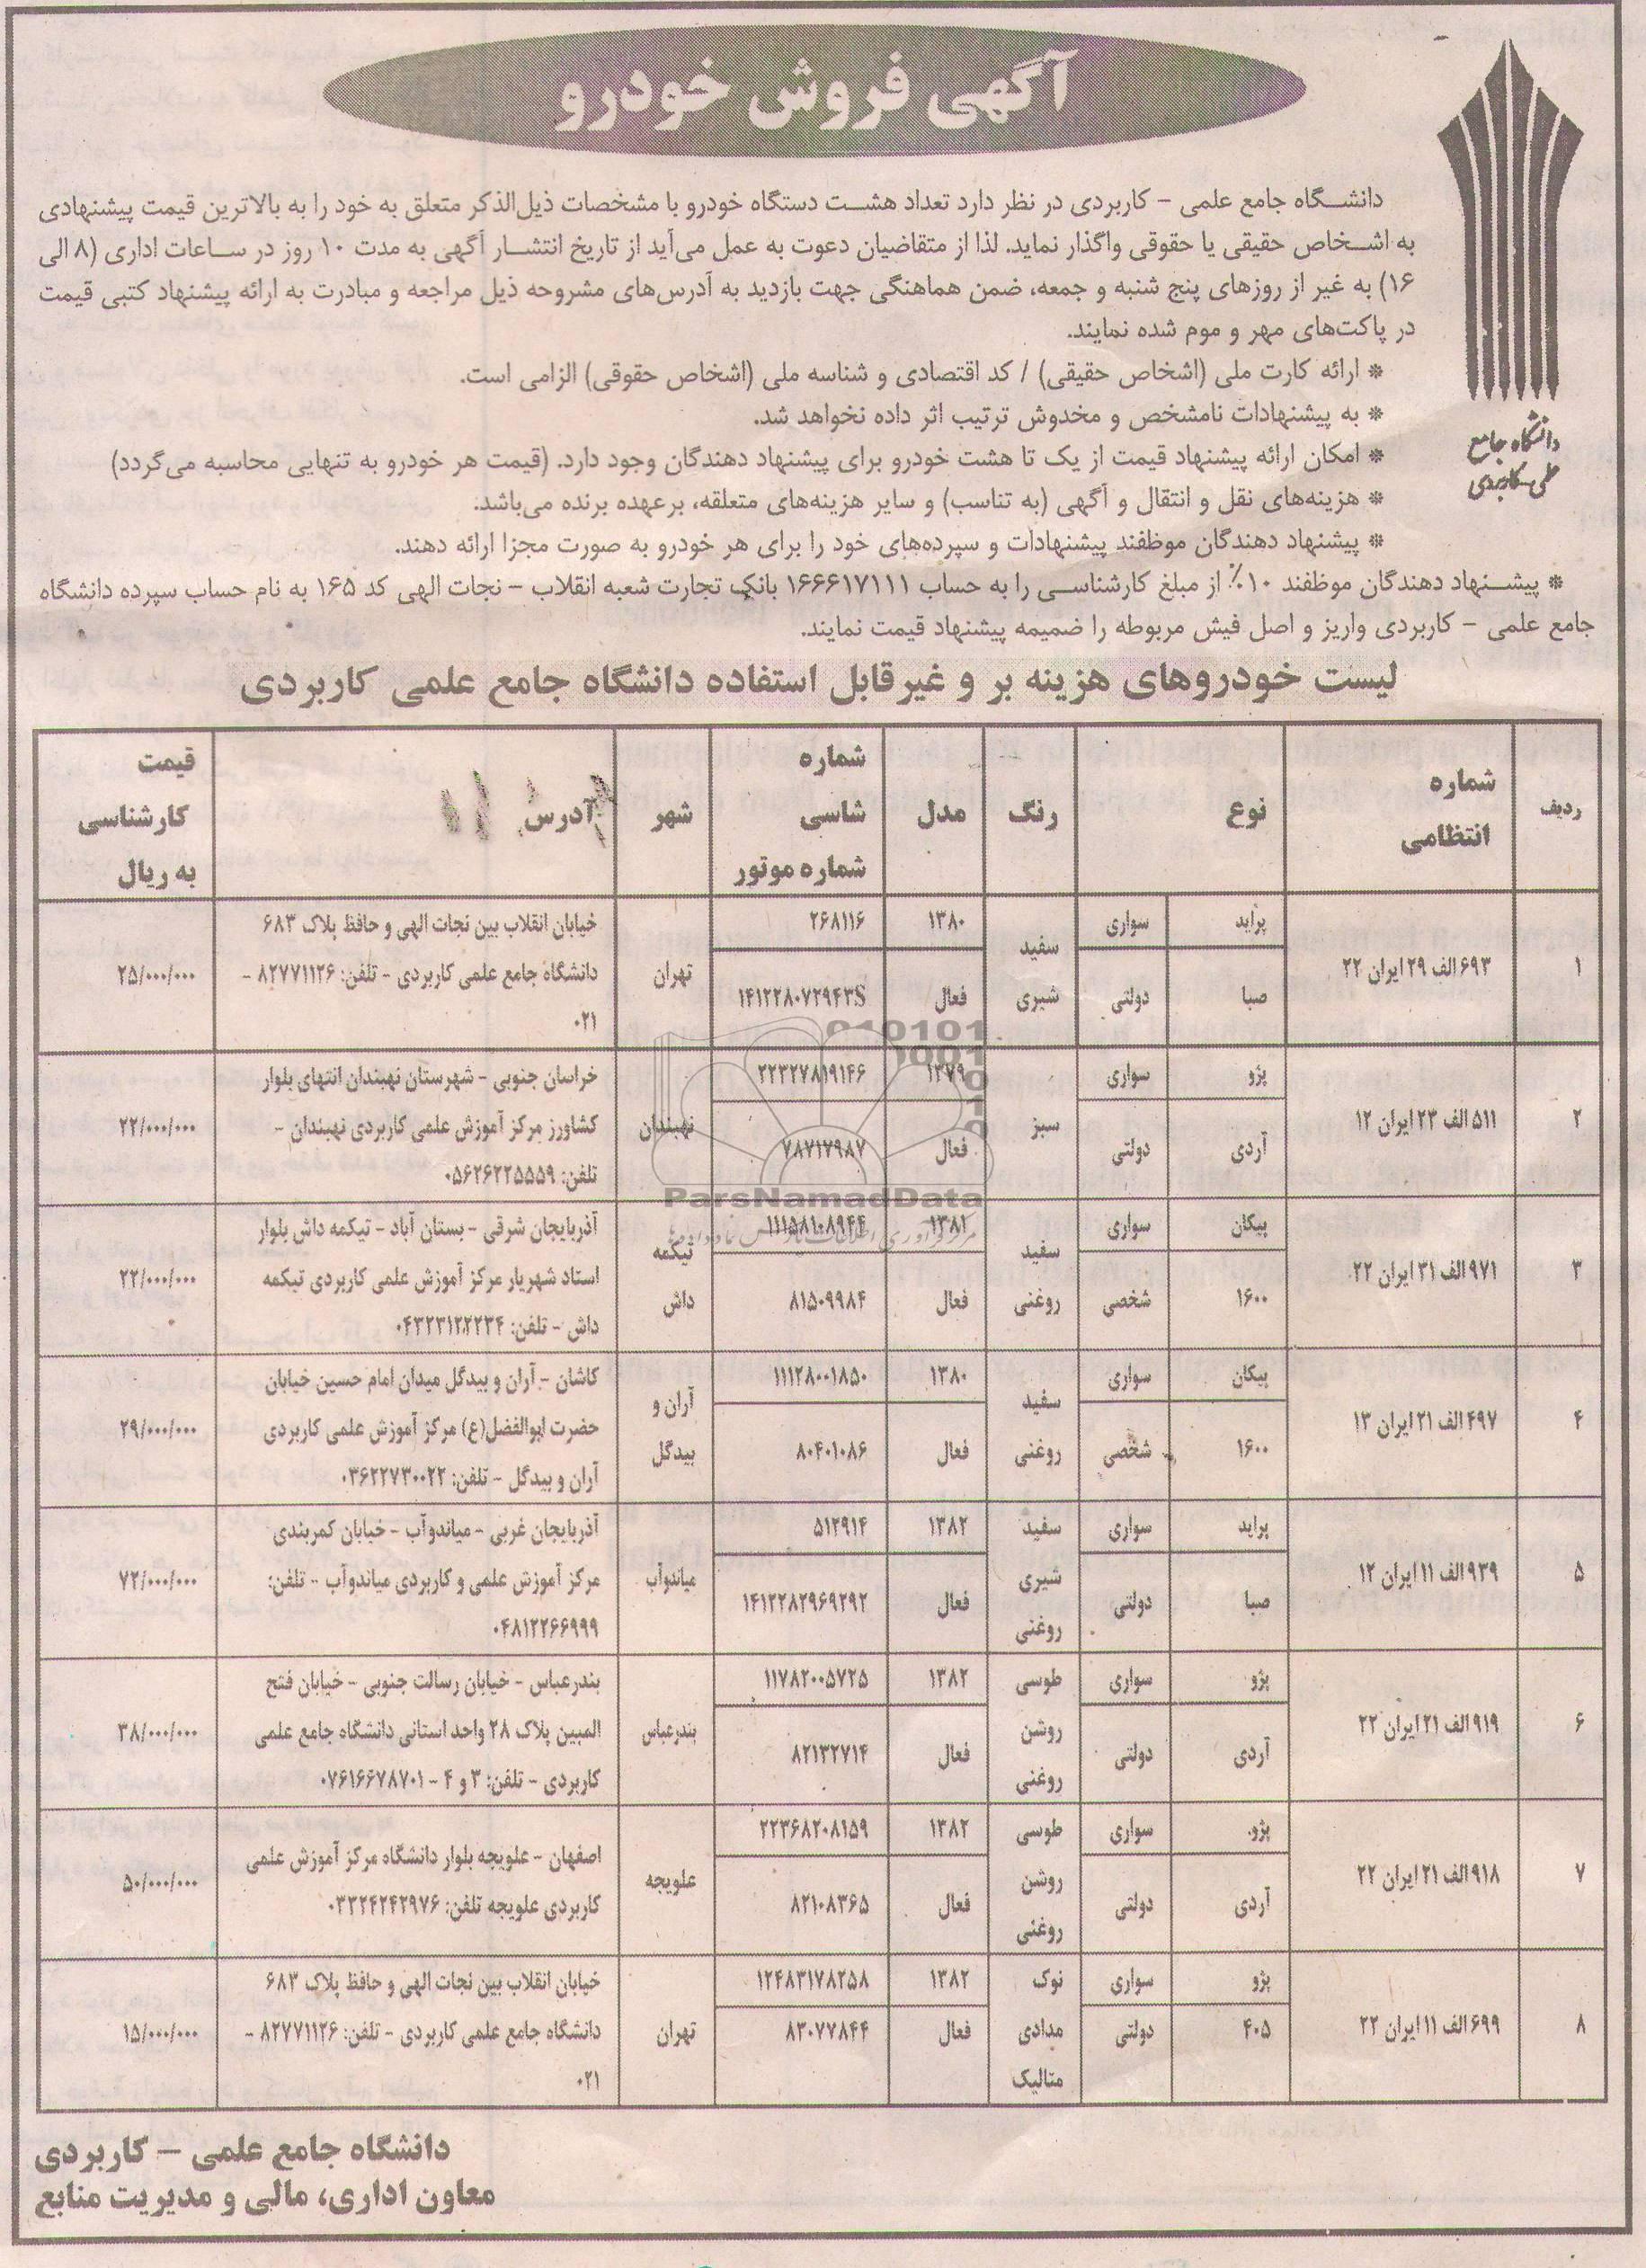 آگهی فروش خودرو
دانشگاه جامع
علمی کاربردی
دانشگاه جامع علمی – کاربردی در نظر دارد تعداد هشت دستگاه خودرو با مشخصات ذیل‌الذکر متعلق به خود را به بالاترین قیمت پیشنهادی
به اشخاص حقیقی یا حقوقی واگذار نماید. لذا از متقاضیان دعوت به عمل می‌آید از تاریخ انتشار آگهی به مدت ۱۰ روز در ساعات اداری (۸ الی
۱۶) به غیر از روزهای پنج شنبه و جمعه، ضمن هماهنگی جهت بازدید به آدرس‌های مشروحه ذیل مراجعه و مبادرت به ارائه پیشنهاد کتبی قیمت
در پاکت‌های مهر و موم شده نمایند.
* ارائه کارت ملی (اشخاص حقیقی) / کد اقتصادی و شناسه ملی (اشخاص حقوقی) الزامی است.
* به پیشنهادات نامشخص و مخدوش ترتیب اثر داده نخواهد شد.
* امکان ارائه پیشنهاد قیمت از یک تا هشت خودرو برای پیشنهاد دهندگان وجود دارد. (قیمت هر خودرو به تنهایی محاسبه می‌گردد)
* هزینه‌های نقل و انتقال و آگهی (به تناسب) و سایر هزینه‌های متعلقه، برعهده برنده می‌باشد.
* پیشنهاد دهندگان موظفند پیشنهادات و سپرده‌های خود را برای هر خودرو به صورت مجزا ارائه دهند.
* پیشنهاد دهندگان موظفند ۱۰٪ از مبلغ کارشناسی را به حساب ۱۶۶۶۱۷۱۱۱ بانک تجارت شعبه انقلاب – نجات الهی کد ۱۶۵ به نام حساب سپرده دانشگاه
جامع علمی – کاربردی واریز و اصل فیش مربوطه را ضمیمه پیشنهاد قیمت نمایند.
لیست خودروهای هزینه بر و غیرقابل استفاده دانشگاه جامع علمی کاربردی
ردیف شماره انتظامی نوع رنگ مدل شماره شاسی شماره موتور شهر آدرس قیمت کارشناسی به ریال
۱ ۶۹۳الف ۲۹ ایران ۲۲ پراید سواری سفید ۱۳۸۰ ۲۶۸۱۱۶ تهران خیابان انقلاب بین نجات الهی و حافظ پلاک ۶۸۳ ۲۵/۰۰۰/۰۰۰
صبا دولتی شیری فعال ۱۴۱۲۲۸۰۷۲۹۴۳S دانشگاه جامع علمی کاربردی – تلفن: ۸۲۷۷۱۱۲۶ –
۰۲۱
۲ ۵۱۱الف ۲۳ ایران ۱۲ پژو سواری سبز ۱۳۷۹ ۲۲۳۲۷۸۱۹۱۴۶ نهبندان خراسان جنوبی – شهرستان نهبندان انتهای بلوار ۲۲/۰۰۰/۰۰۰
آردی دولتی فعال ۷۸۷۱۷۹۸۷ کشاورز مرکز آموزش علمی کاربردی نهبندان –
تلفن: ۰۵۶۲۶۲۲۵۵۵۹
۳ ۹۷۱الف ۳۱ ایران ۲۲ پیکان سواری سفید ۱۳۸۱ ۱۱۱۵۸۱۰۸۹۴۴ تیکمه آذربایجان شرقی – بستان آباد – تیکمه داش بلوار ۲۲/۰۰۰/۰۰۰
۱۶۰۰ شخصی روغنی فعال ۸۱۵۰۹۹۸۴ داش استاد شهریار مرکز آموزش علمی کاربردی تیکمه
داش – تلفن: ۰۴۳۲۳۱۲۲۲۳۴
۴ ۴۹۷الف ۲۱ ایران ۱۳ پیکان سواری سفید ۱۳۸۰ ۱۱۱۲۸۰۰۱۸۵۰ آران و کاشان – آران و بیدگل میدان امام حسین خیابان ۲۹/۰۰۰/۰۰۰
۱۶۰۰ شخصی روغنی فعال ۸۰۴۰۱۰۸۶ بیدگل حضرت ابوالفضل(ع) مرکز آموزش علمی کاربردی
آران و بیدگل – تلفن: ۰۳۶۲۲۷۳۰۰۲۲
۵ ۹۳۹الف ۱۱ ایران ۱۲ پراید سواری سفید ۱۳۸۲ ۵۱۲۹۱۴ میاندوآب آذربایجان غربی – میاندوآب – خیابان کمربندی ۷۲/۰۰۰/۰۰۰
صبا دولتی شیری روغنی فعال ۱۴۱۲۲۸۲۹۶۹۲۹۲ مرکز آموزش علمی و کاربردی میاندوآب – تلفن:
۰۴۸۱۲۲۶۶۹۹۹
۶ ۹۱۹الف ۲۱ ایران ۲۲ پژو سواری طوسی ۱۳۸۲ ۱۱۷۸۲۰۰۵۷۲۵ بندرعباس بندرعباس – خیابان رسالت جنوبی – خیابان فتح ۳۸/۰۰۰/۰۰۰
آردی دولتی روشن روغنی فعال ۸۲۱۳۲۷۱۴ المبین پلاک ۲۸ واحد استانی دانشگاه جامع علمی
کاربردی – تلفن: ۳ و ۴ – ۰۷۶۱۶۶۷۸۷۰۱
۷ ۹۱۸الف ۲۱ ایران ۲۲ پژو سواری طوسی ۱۳۸۲ ۲۲۳۶۸۲۰۸۱۵۹ علویجه اصفهان – علویجه بلوار دانشگاه مرکز آموزش علمی ۵۰/۰۰۰/۰۰۰
آردی دولتی روشن روغنی فعال ۸۲۱۰۸۳۶۵ کاربردی علویجه تلفن: ۰۳۳۲۴۲۴۲۹۷۶
۸ ۶۹۹الف ۱۱ ایران ۲۲ پژو سواری نوک ۱۳۸۲ ۱۲۴۸۳۱۷۸۲۵۸ تهران خیابان انقلاب بین نجات الهی و حافظ پلاک ۶۸۳ ۱۵/۰۰۰/۰۰۰
۴۰۵ دولتی مدادی متالیک فعال ۸۳۰۷۷۸۴۴ دانشگاه جامع علمی کاربردی – تلفن: ۸۲۷۷۱۱۲۶ –
۰۲۱
ParsNamadData
دانشگاه جامع علمی – کاربردی
معاون اداری، مالی و مدیریت منابع